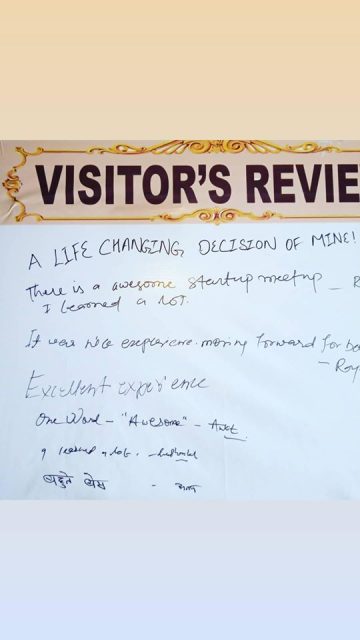 VISITOR'S REVIE
A LIFE CHANGING, DECISION OF MINE!
There is a awesome startup meetup - R
I learned a lot.
It was nice experience. moving forward for be
- Roy
Excellent experience
One Word - "Awesome" -
I learned a lot. -
बहुते बेस -